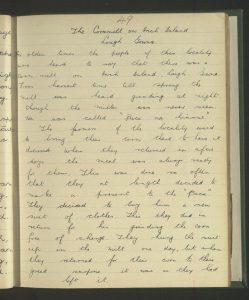 49
The Cornmill on Inch Island
Lough Gowna.
In olden times the people of this locality
are heard to say that there was a
corn-mill on Inch Island, Lough Gowna.
From harvest time till spring the
mill was heard grinding at night
though the miller was never seen.
He was called
The farmers of the locality used
to bring their corn there to have it
When they returned in after
days the meal was always ready
for them. This was done so often
that they at length decided to
make a present to the
They decided to buy him a new
suit of clothes. This they did in
return for his grinding the corn
free of charge. They hung the suit
up in the mill one day, but when
they returned for their corn to their
great surprise it was as they had
left it.